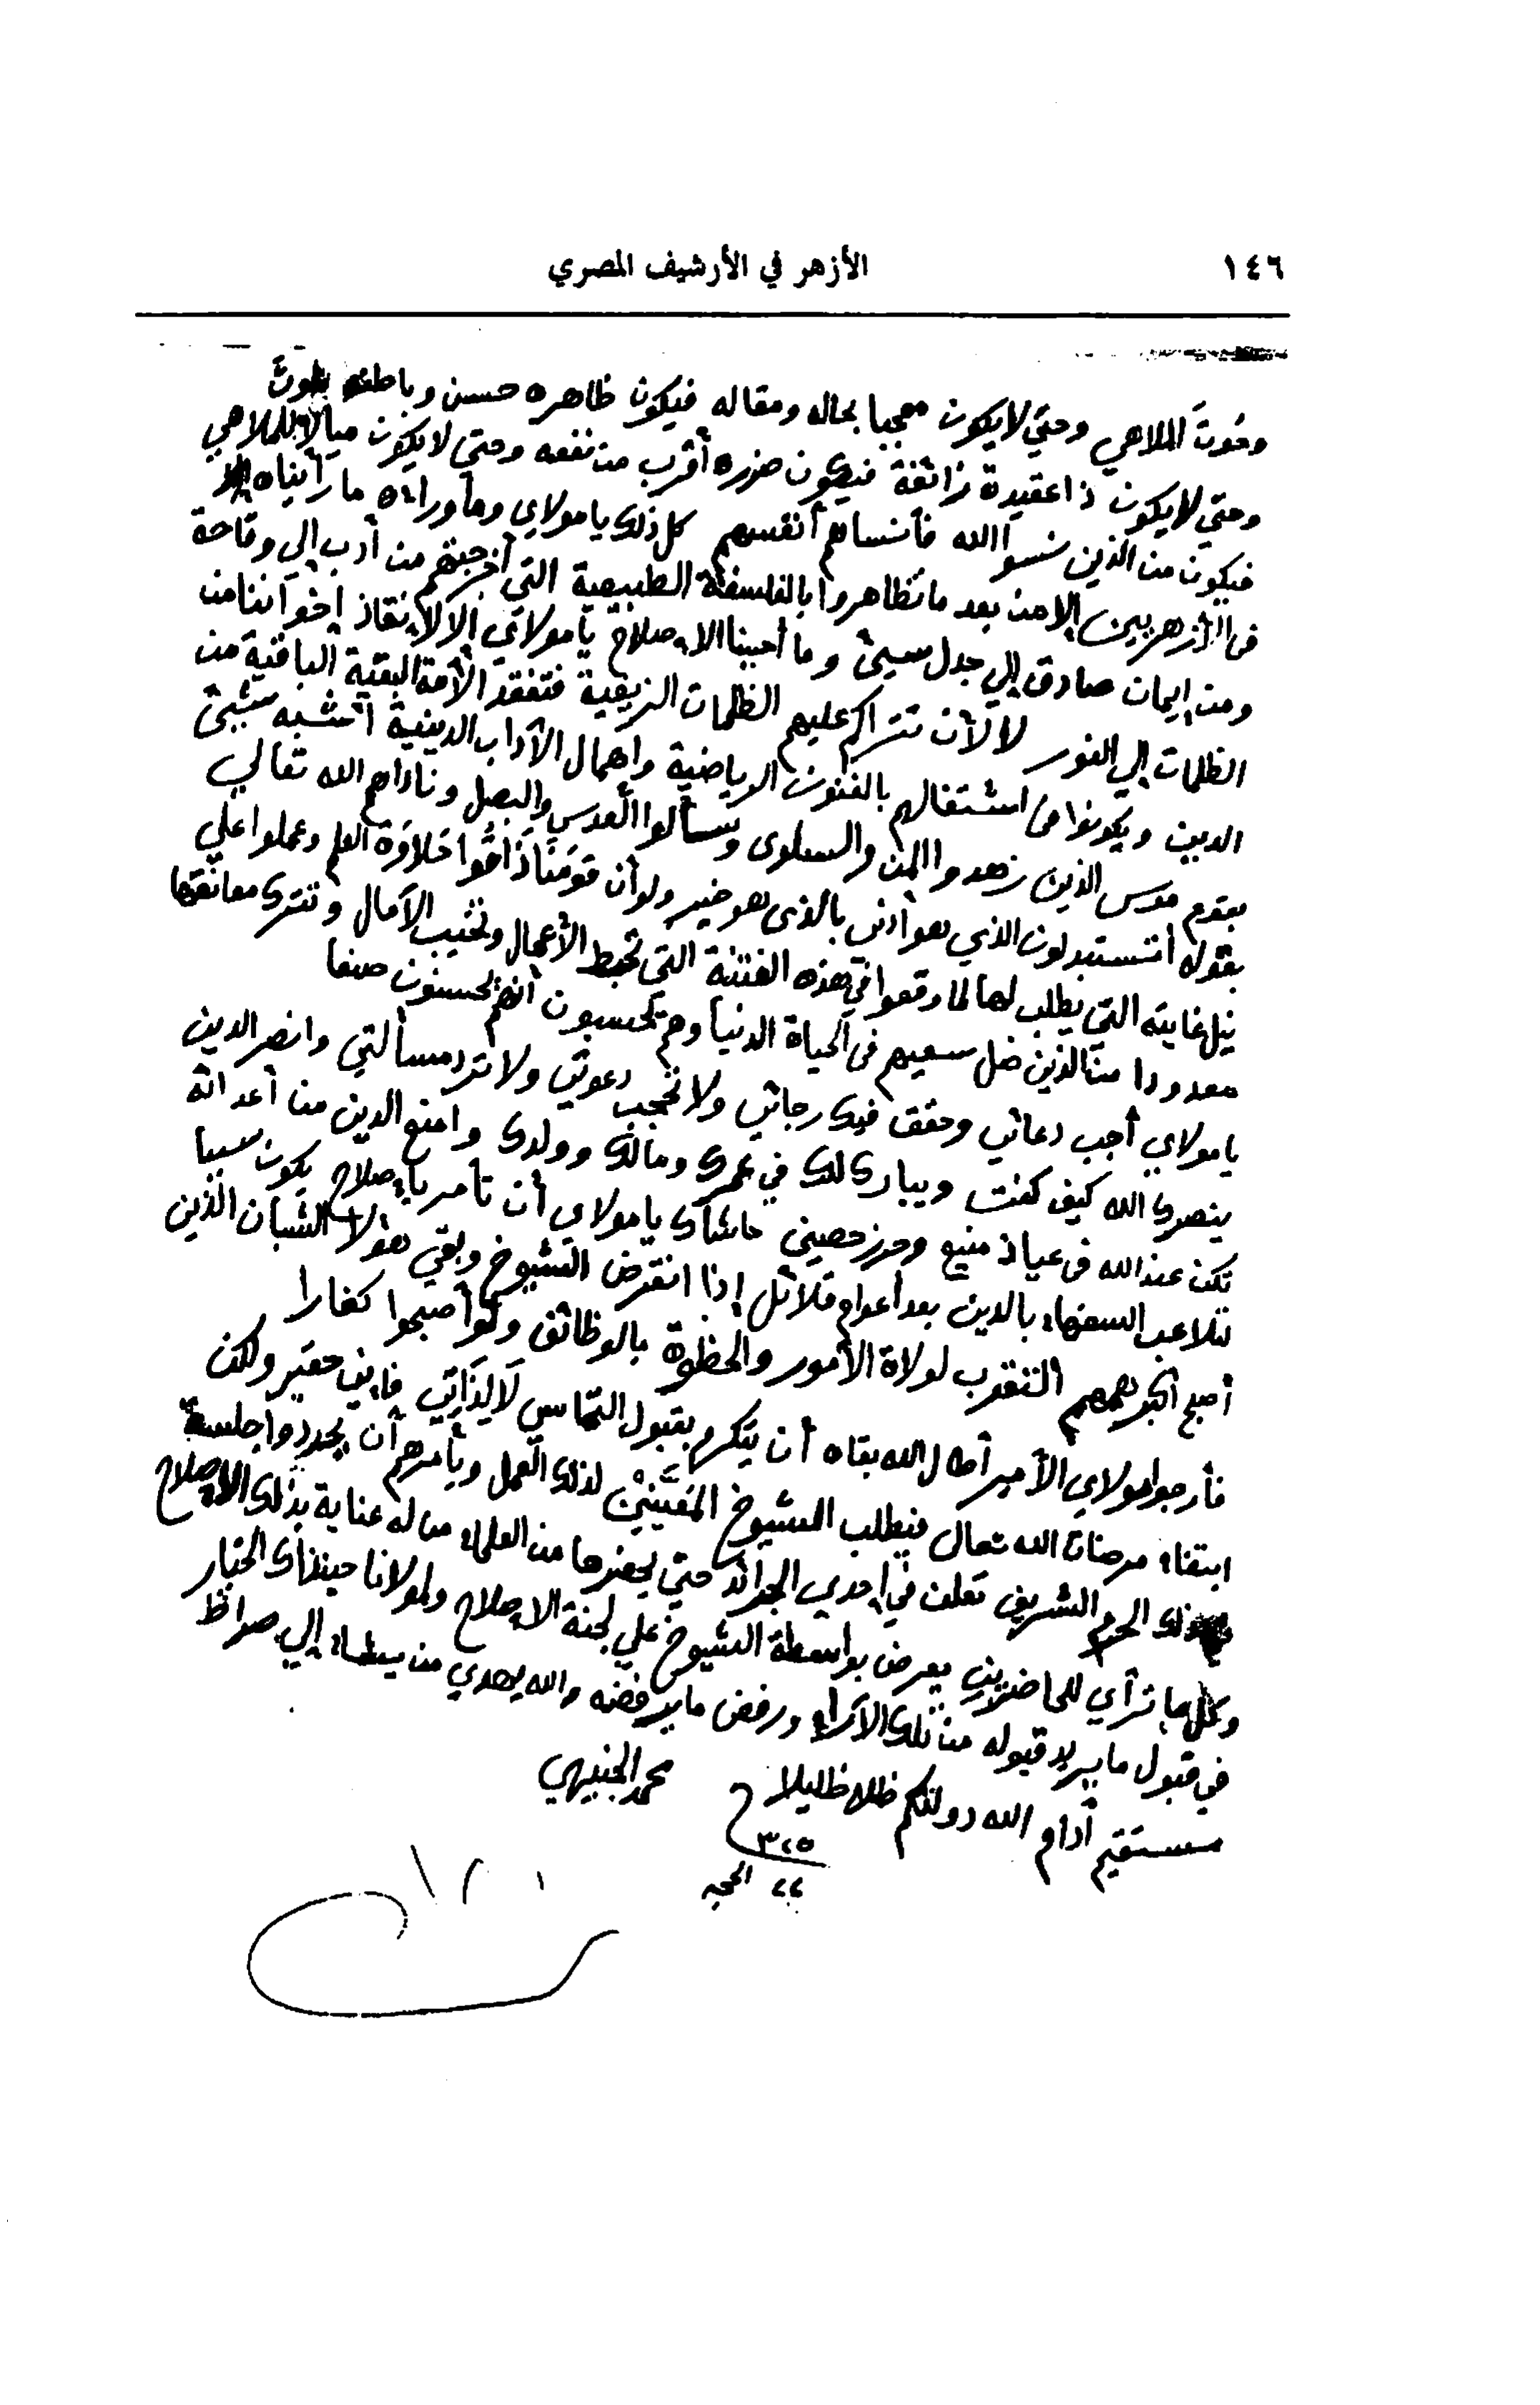 ١٤٦
الأزهر في الأرشيف المصري
وخوت الملاهي وحتي لا يكون معجبا بحاله ومقاله فيكون ظاهره حسن وباطنه
وحتي لا يكون ذا عقيدة زائغة فيكون ضرره أقرب من نفعه وحتي لا يكون ميالا للملاهي
فيكون من الذين نسوا الله فأنساهم أنفسهم كل ذلك يا مولاي وما وراءه ما رأيناه
في الأزهريين الا من بعد ما تظاهروا بالفلسفة الطبيعية التي أخرجتهم من أدب إلي وقاحة
ومن إيمان صادق إلي جدل سيئ وما أحببنا الاصلاح يا مولاي الا لإنقاذ إخواننا من
الظلمات إلي النور لا لأن تتراكم عليهم الظلمات الزيفية فتفقد الأمة البقية الباقية من
الدين ويكونوا في اشتغالهم بالفنون الرياضية واهمال الآداب الدينية أشبه شيئ
بقوم موسى الذين زهدوا المن والسلوى وسألوا العدس والبصل وناداهم الله تعالي
بقوله أتستبدلون الذي هو أدنى بالذى هو خير ولو أن قومنا ذاقوا حلاوة العلم وعملوا علي
نيل غايته التي يطلب لها لما وقعوا في هذه الفتنة التي تحبط الأعمال وتخيب الآمال وتترك معانقها
معدودا من الذين ضل سعيهم في الحياة الدنيا وهم يحسبون أنهم يحسنون صنعا
يا مولاي أجب دعائي وحقق فيك رجائي ولا تحجب دعوتي ولا ترد مسألتي وانصر الدين
ينصرك الله كيف كنت ويبارك لك في عمرك ومالك وولدك وامنع الدين من أعدائه
تكن عند الله في عياذ منيع وحرز حصين حاشاك يا مولاي أن تأمر بإصلاح يكون سببا
لتلاعب السفهاء بالدين بعد أعوام قلائل إذا انقرض الشيوخ وبقي هؤلاء الشبان الذين
أصبح أكبر همهم التقرب لولاة الأمور والحظوة بالوظائف ولو أصبحوا كفارا
فأرجو مولاي الأمير أطال الله بقاه أن يتكرم بقبول التماسي لا لذاتي فإني حقير ولكن
ابتغاء مرضات الله تعالى فيطلب الشيوخ المعينين لذلك العمل ويأمرهم أن يجددوا جلسة
الحرم الشريف تعلن في إحدي الجرائد حتي يحضرها من العلماء من له عناية بذلك الاصلاح
وكل ما ترآي للحاضرين يعرض بواسطة الشيوخ علي لجنة الاصلاح ولمولانا حينذاك الخيار
في قبول ما يريد قبوله من تلك الآراء ورفض ما يرفضه والله يهدي من يشاء إلي صراط
مستقيم أدام الله دولتكم ظلا ظليلا
محمد الجنبيهي
٢٢ الحجه ٣٢٥